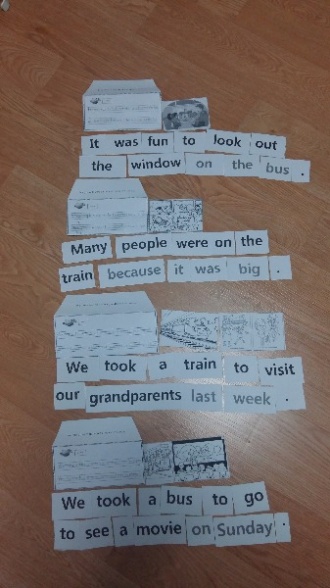 It was fun to look out
the window on the bus .
Many people were on the
train because it was big .
We took a train to visit
our grandparents last week .
We took a bus to go
to see a movie on Sunday .